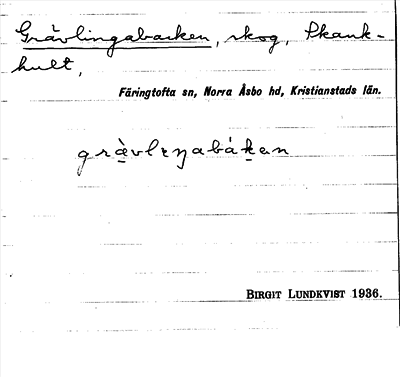 Grävlingabacken, skog, Skank-
hult,
Färingtofta sn, Norra Åsbo hd, Kristianstads län.
grä̀vlɪŋabákan
BIRGIT LUNDKVIST 1936.